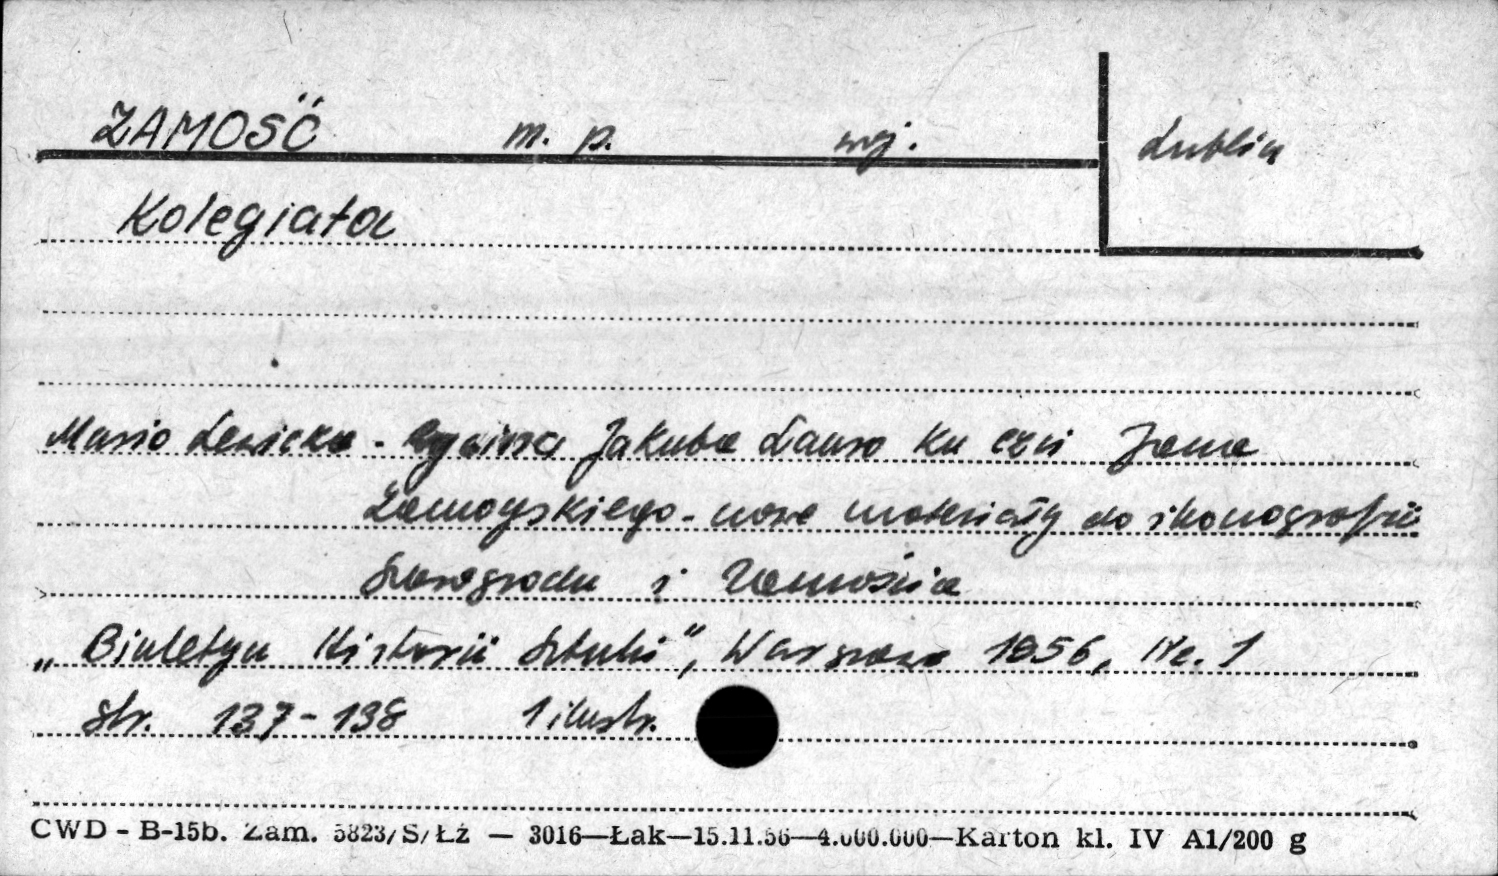 ZAMOŚĆ m. p. woj. Lublin
Kolegiata
Maria Lewicka - Rycina Jakuba Lauro ku czci Jana
Zamoyskiego - nowe materiały do ikonografii
Szarogrodu i Zamościa
„Biuletyn Historii Sztuki”, Warszawa 1956, Nr. 1
str. 137-138 1 ilustr.
CWD - B-15b. Zam. 5823/S/Łź — 3016—Łak—15.11.56—4.000.000—Karton kl. IV A1/200 g